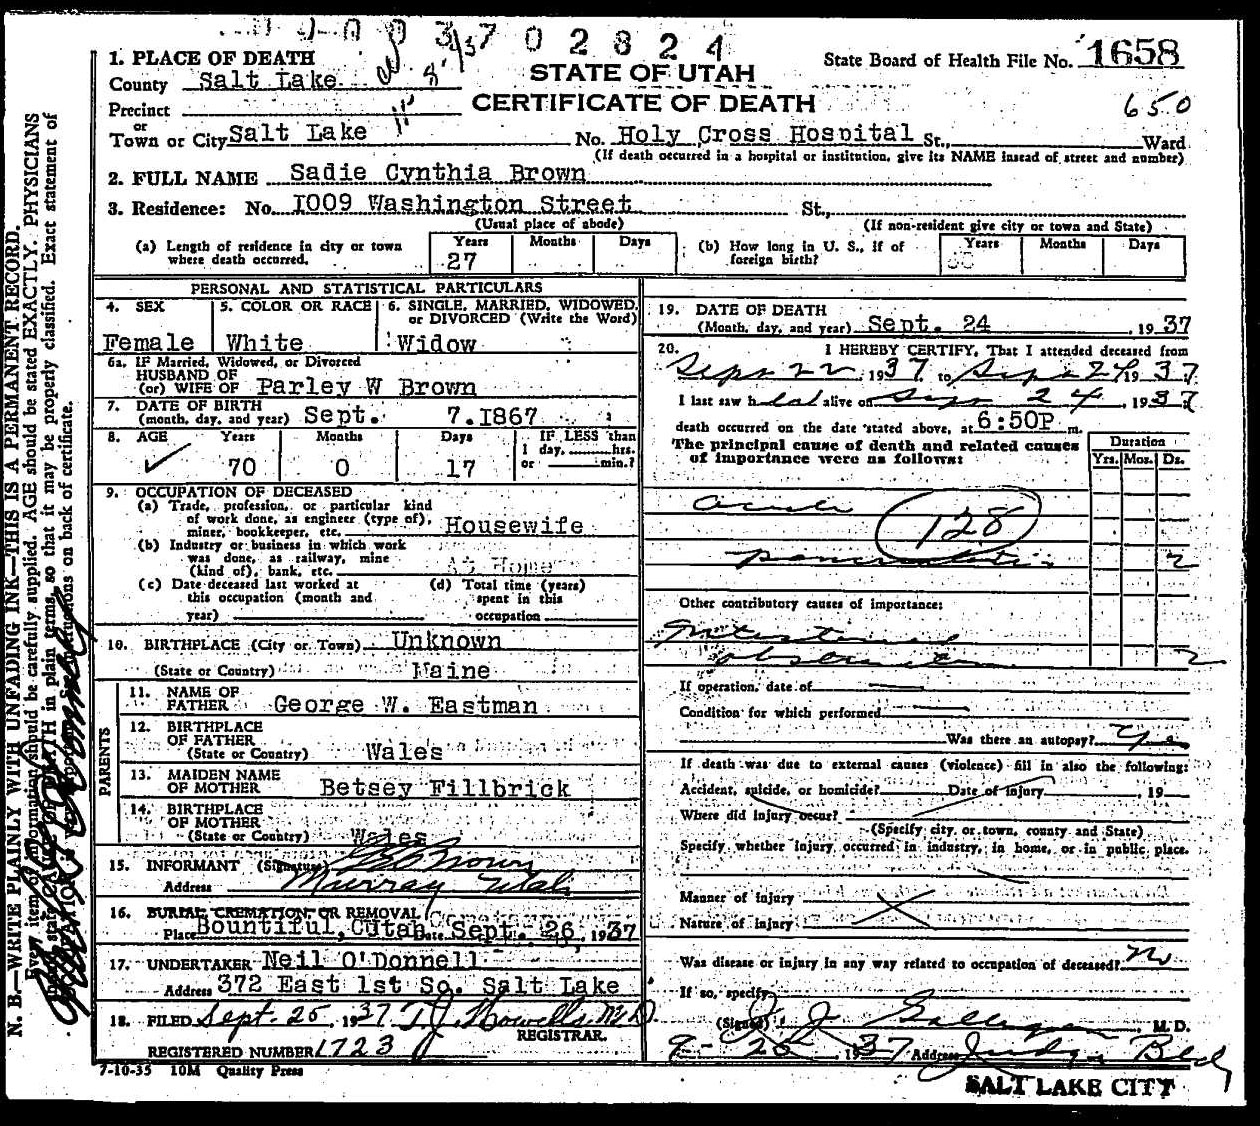 37 02824
1. PLACE OF DEATH
County Salt Lake
Precinct
or
Town or City Salt Lake
STATE OF UTAH
CERTIFICATE OF DEATH
State Board of Health File No. 1658
650
No. Holy Cross Hospital St., Ward
(If death occurred in a hospital or institution, give its NAME instead of street and number)
2. FULL NAME Sadie Cynthia Brown
3. Residence: No. 1009 Washington Street St.,
(Usual place of abode) (If non-resident give city or town and State)
(a) Length of residence in city or town where death occurred. Years 27 Months Days
(b) How long in U. S., if of foreign birth? Years Months Days
PERSONAL AND STATISTICAL PARTICULARS
4. SEX Female
5. COLOR OR RACE White
6. SINGLE, MARRIED, WIDOWED, or DIVORCED (Write the Word) Widow
6a. IF Married, Widowed, or Divorced
HUSBAND OF
(or) WIFE OF Parley W Brown
7. DATE OF BIRTH
(month, day, and year) Sept. 7.1867
8. AGE Years 70 Months 0 Days 17 IF LESS than 1 day, hrs. or min.?
9. OCCUPATION OF DECEASED
(a) Trade, profession, or particular kind
of work done, as engineer (type of),
miner, bookkeeper, etc. Housewife
(b) Industry or business in which work
was done, as railway, mine
(kind of), bank, etc. At Home
(c) Date deceased last worked at
this occupation (month and
year)
(d) Total time (years)
spent in this
occupation
10. BIRTHPLACE (City or Town) Unknown
(State or Country) Maine
PARENTS
11. NAME OF
FATHER George W. Eastman
12. BIRTHPLACE
OF FATHER
(State or Country) Wales
13. MAIDEN NAME
OF MOTHER Betsey Fillbrick
14. BIRTHPLACE
OF MOTHER
(State or Country) Wales
15. INFORMANT (Signature) Brown
Address Murray Utah
16. BURIAL, CREMATION, OR REMOVAL
Place Bountiful, Utah Date Sept. 26, 1937
17. UNDERTAKER Neil O'Donnell
Address 372 East 1st So. Salt Lake
18. FILED Sept. 25 1937 T. J. Howells, M.D.
REGISTRAR.
REGISTERED NUMBER 1723
7-10-35 10M Quality Press
19. DATE OF DEATH
(Month, day, and year) Sept. 24, 1937
20. I HEREBY CERTIFY, That I attended deceased from
Sept 22, 1937 to Sept 24 1937
I last saw h alive on Sept 24, 1937
death occurred on the date stated above, at 6:50P m.
The principal cause of death and related causes
of importance were as follows:
Duration
Yrs. Mos. Ds.
acute
128
pancreatitis 2
Other contributory causes of importance:
Intestinal
obstruction 2
If operation, date of
Condition for which performed
Was there an autopsy? Yes
If death was due to external causes (violence) fill in also the following:
Accident, suicide, or homicide? Date of injury , 19
Where did injury occur?
(Specify city or town, county and State)
Specify whether injury occurred in industry, in home, or in public place.
Manner of injury
Nature of injury
Was disease or injury in any way related to occupation of deceased? no
If so, specify
(Signed) J. J. Galligan, M. D.
9-25, 1937 Address Judge Bldg
SALT LAKE CITY
N. B.—WRITE PLAINLY WITH UNFADING INK—THIS IS A PERMANENT RECORD.
Every item of information should be carefully supplied. AGE should be stated EXACTLY. PHYSICIANS
should state CAUSE OF DEATH in plain terms, so that it may be properly classified. Exact statement of
OCCUPATION is very important. See instructions on back of certificate.